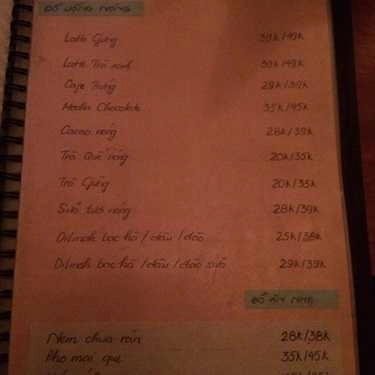 ĐỒ UỐNG NÓNG
Latte Gừng 39k/49k
Latte Trà xanh 39k/49k
Cafe Trứng 29k/39k
Mocha Chocolate 35k/45k
Cacao nóng 28k/39k
Trà Quế nóng 20k/35k
Trà Gừng 20k/35k
Sữa tươi nóng 28k/39k
Dilmah bạc hà / dâu / đào 25k/38k
Dilmah bạc hà / dâu / đào sữa 29k/39k
ĐỒ ĂN NHẸ
Nem chua rán 28k/38k
Pho mai que 35k/45k